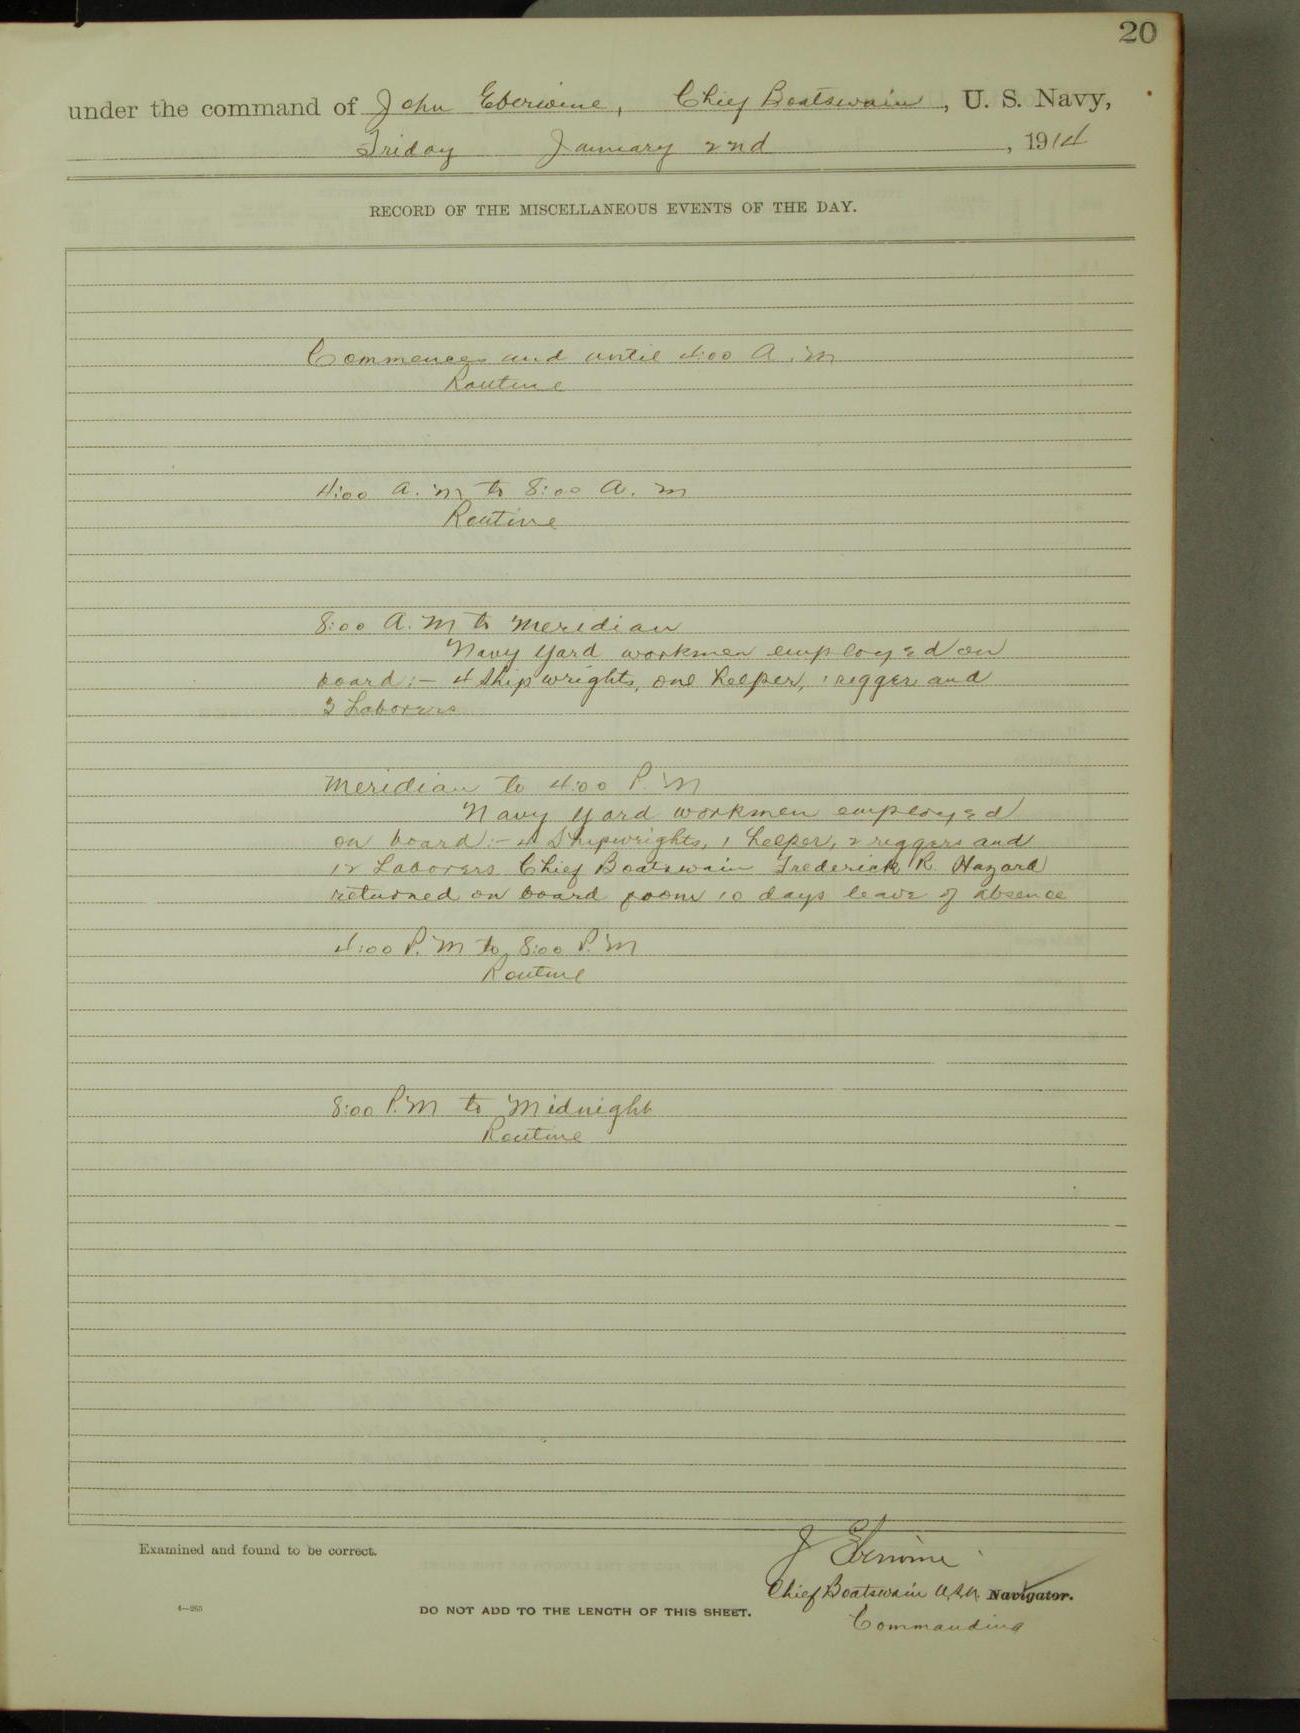 20
under the command of John Eberwine, Chief Boatswain, U. S. Navy,
Friday January 2nd, 1914
RECORD OF THE MISCELLANEOUS EVENTS OF THE DAY.
Commences and until 4:00 A.M
Routine
4:00 A.M to 8:00 A.M
Routine
8:00 A.M to Meridian
Navy Yard workmen employed on
board:- 4 Shipwrights, one helper, 1 rigger and
3 Laborers
Meridian to 4:00 P.M
Navy Yard workmen employed
on board:- 4 Shipwrights, 1 helper, 2 riggers and
12 Laborers. Chief Boatswain Frederick R. Hazard
returned on board from 10 days leave of absence
4:00 P.M to 8:00 P.M
Routine
8:00 P.M to Midnight
Routine
Examined and found to be correct.
J Eberwine
Chief Boatswain U.S.N. Navigator.
4—265
DO NOT ADD TO THE LENGTH OF THIS SHEET.
Commanding